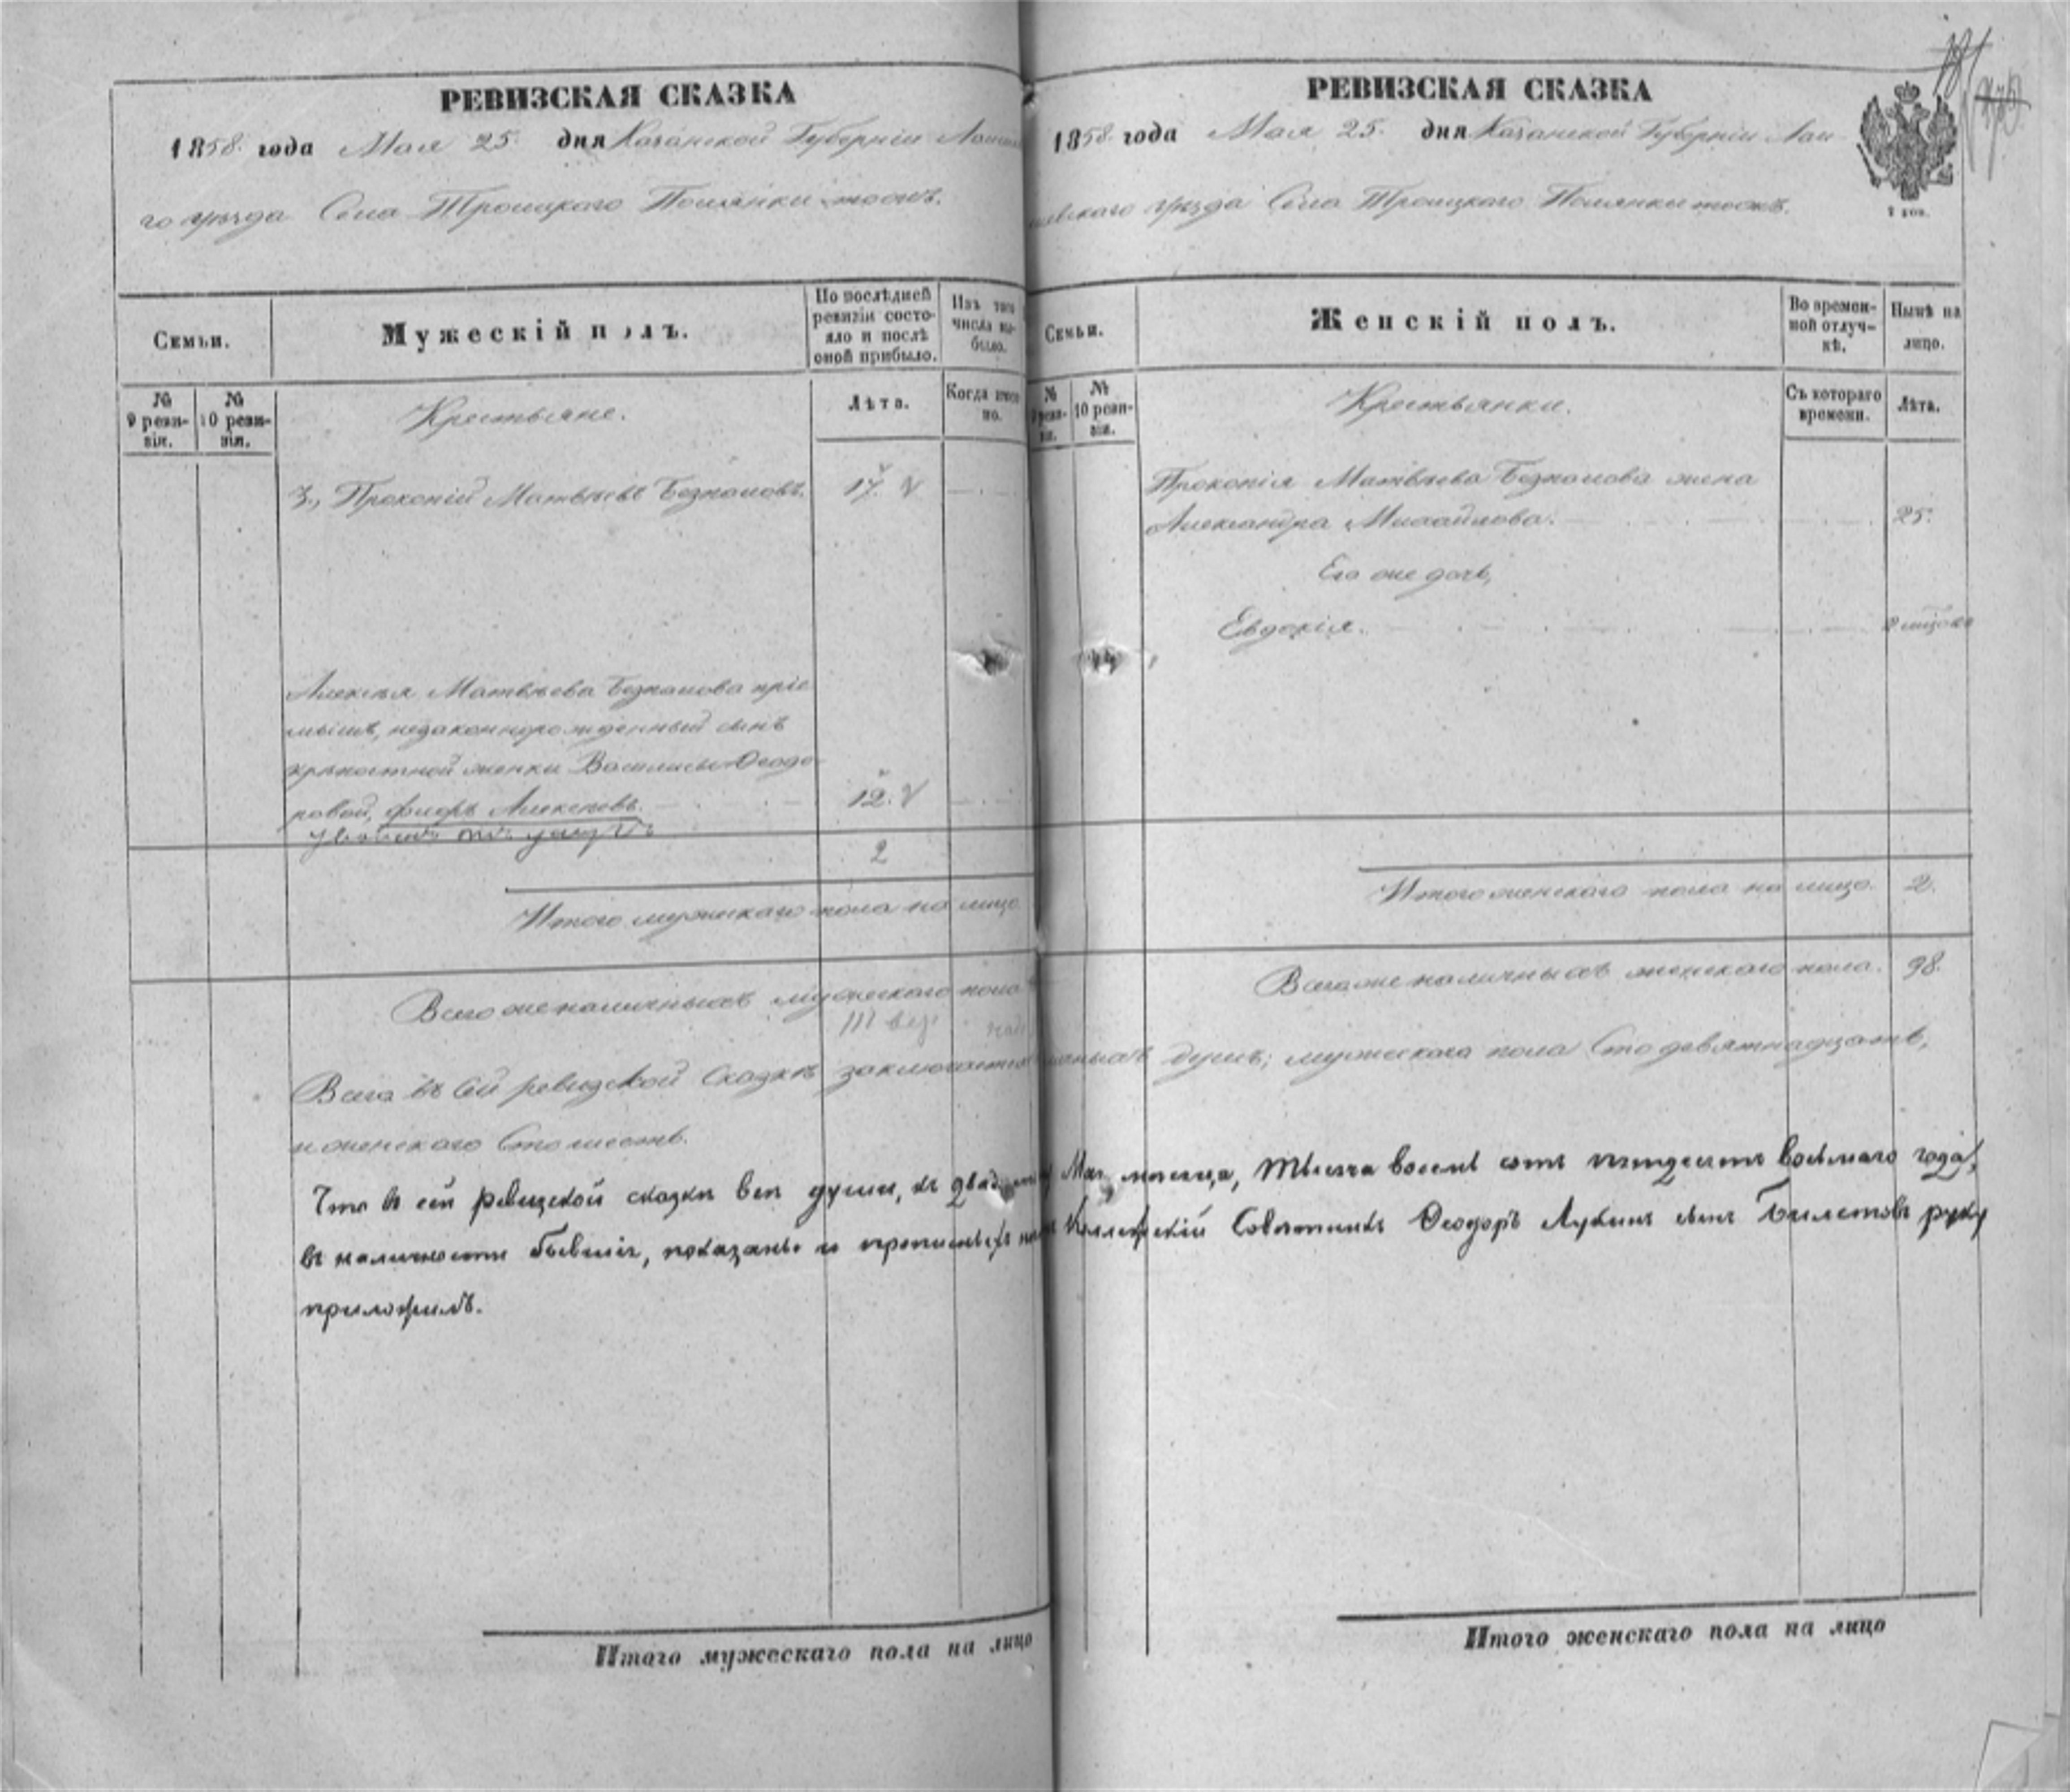 РЕВИЗСКАЯ СКАЗКА
1858 года Мая 25 дня Казанской Губерніи
го уѣзда Села Троицкаго
Семьи.
Мужескій полъ.
По послѣдней ревизіи состояло и послѣ оной прибыло.
Изъ того числа выбыло.
№ 9 ревизіи.
№ 10 ревизіи.
Крестьяне.
Лѣта.
Когда имен
но.
3., Прокопій Матвѣевъ
17.
Алексѣя Матвѣева пріе
мышъ, незаконнорожденный сынъ
крѣпостной женки Василисы Ѳеодо
ровой, Алексѣевъ.
12.
2
Итого мужескаго пола на лицо
Всего же наличныхъ мужескаго пола
РЕВИЗСКАЯ СКАЗКА
1858 года Мая 25. дня Казанской Губерніи Лаи
шевскаго уѣзда Села Троицкаго
Семьи.
Женскій полъ.
Во времен-
ной отлуч-
кѣ.
Нынѣ на
лицо.
№ 10 реви-
зіи.
Крестьянки.
Съ котораго
времени.
Лѣта.
Прокопія Матвѣева жена
Александра Михайлова.
25.
Его же дочь,
Евдокія.
Итого женскаго пола на лицо.
2.
Всего же наличныхъ женскаго пола.
98.
Всего въ сей ревизской сказкѣ заключается душъ; мужескаго пола Сто девятнадцать,
и женскаго Сто шесть.
Что въ сей ревизской сказкѣ всѣ души, къ Мая мѣсяца, тысяча восемь сотъ пятидесятъ восьмаго года,
въ наличности бывшіе, показаны и Коллежскій Совѣтникъ Ѳеодоръ сынъ руку
приложилъ.
Итого мужескаго пола на лицо
Итого женскаго пола на лицо